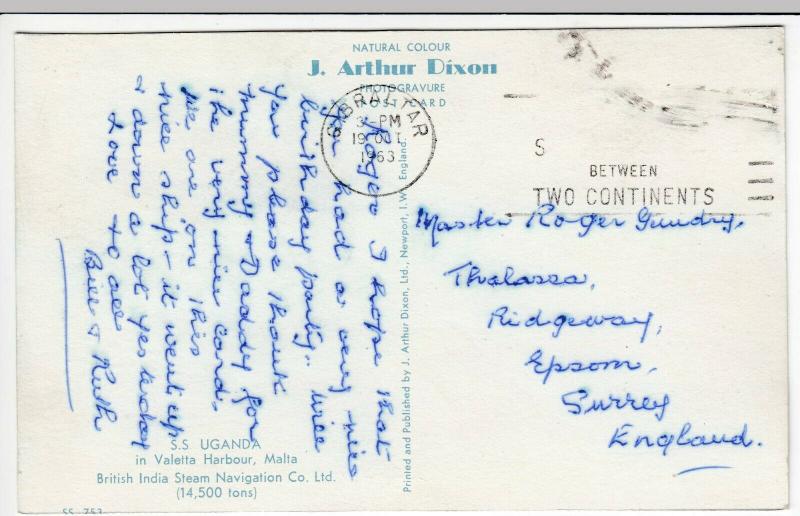 NATURAL COLOUR
J. Arthur Dixon
PHOTOGRAVURE
POST CARD
GIBRALTAR
3-PM
19 OCT
1963
S
BETWEEN
TWO CONTINENTS
Roger I hope that
you had a very nice
birthday party. Will
you please thank
mummy & Daddy for
the very nice card.
We are on this
nice ship - it went up
& down a lot yesterday
Love to all
Bill & Ruth
Printed and Published by J. Arthur Dixon, Ltd., Newport, I.W., England.
Master Roger Gundry,
Thalassa,
Ridgeway,
Epsom,
Surrey
England.
S.S UGANDA
in Valetta Harbour, Malta
British India Steam Navigation Co. Ltd.
(14,500 tons)
SS 753